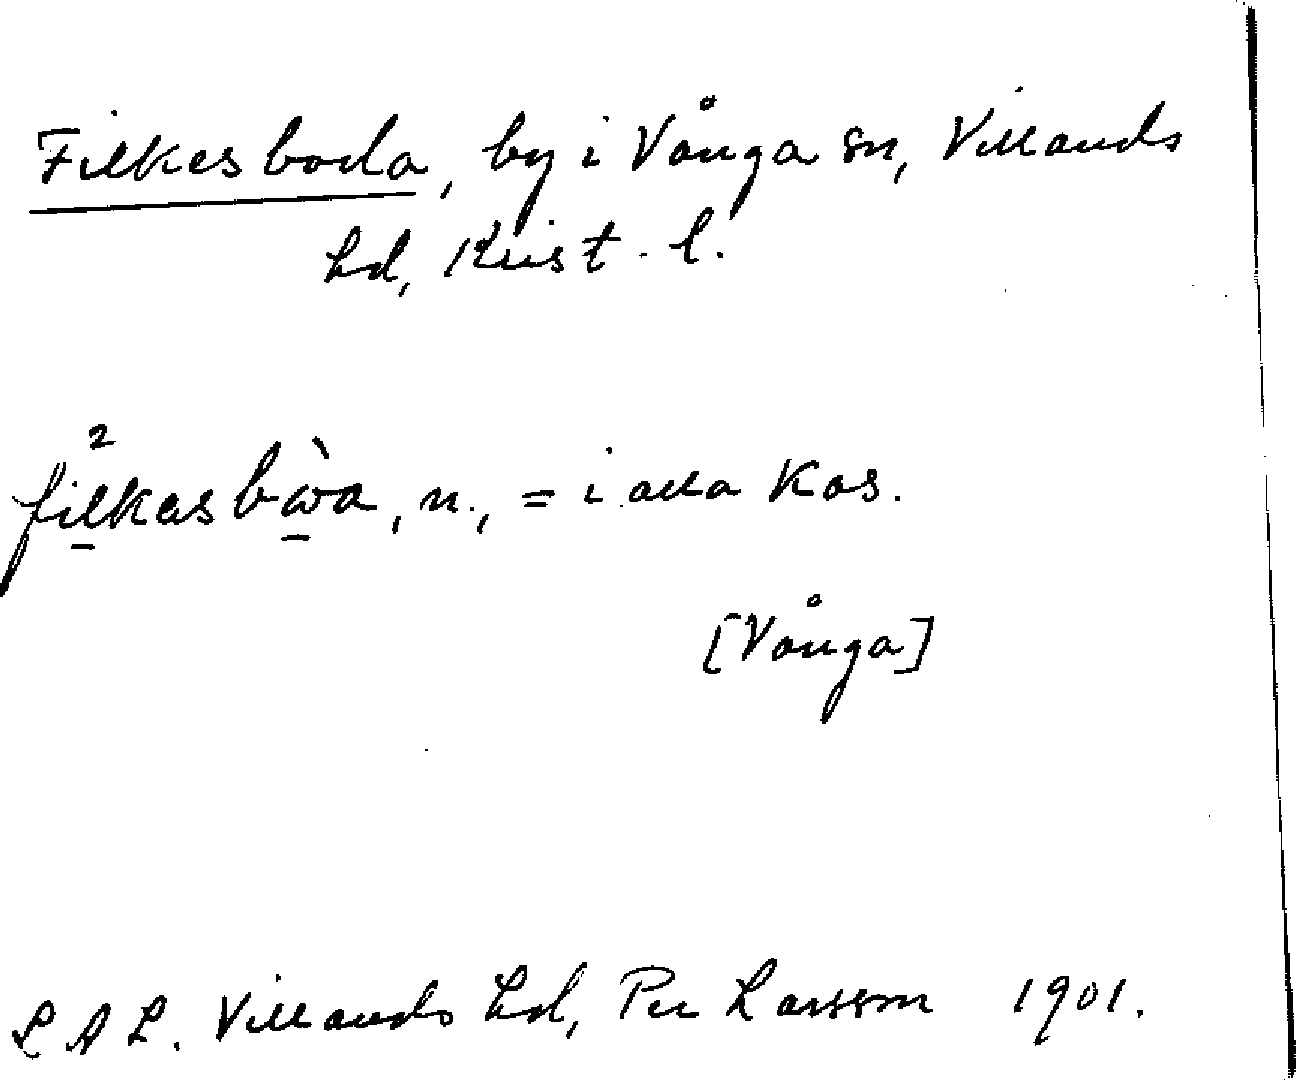 Filkesboda, by i Vånga sn, Villands
hd, Krist. l.
fi²lkasbὼa, n., = i alla kas.
[Vånga]
L A L. Villands hd, Per Larsson 1901.